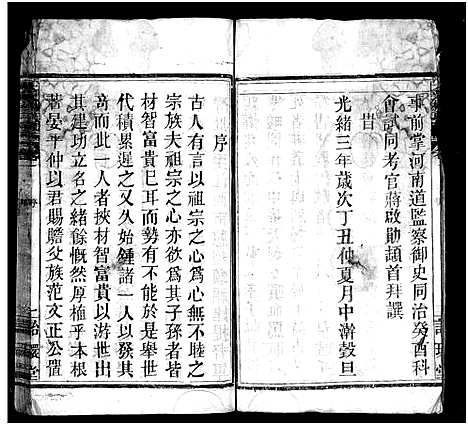 事前掌河南道監察御史同治癸酉科
會試同考官蔣啟勛頡首拜譔
昔
光緒三年歲次丁丑仲夏月中澣穀旦
序
古人有言以祖宗之心爲心無不睦之
宗族夫祖宗之心亦欲爲其子孫者皆
材智富貴已耳而勢有不能於是舉世
代積累遲之又久始鍾諸一人以發其
奇而此一人者挾材智富貴以游世出
其建功立名之緒餘慨然厚植乎本根
蓋晏平仲以君賜贍父族范文正公置
詒環堂